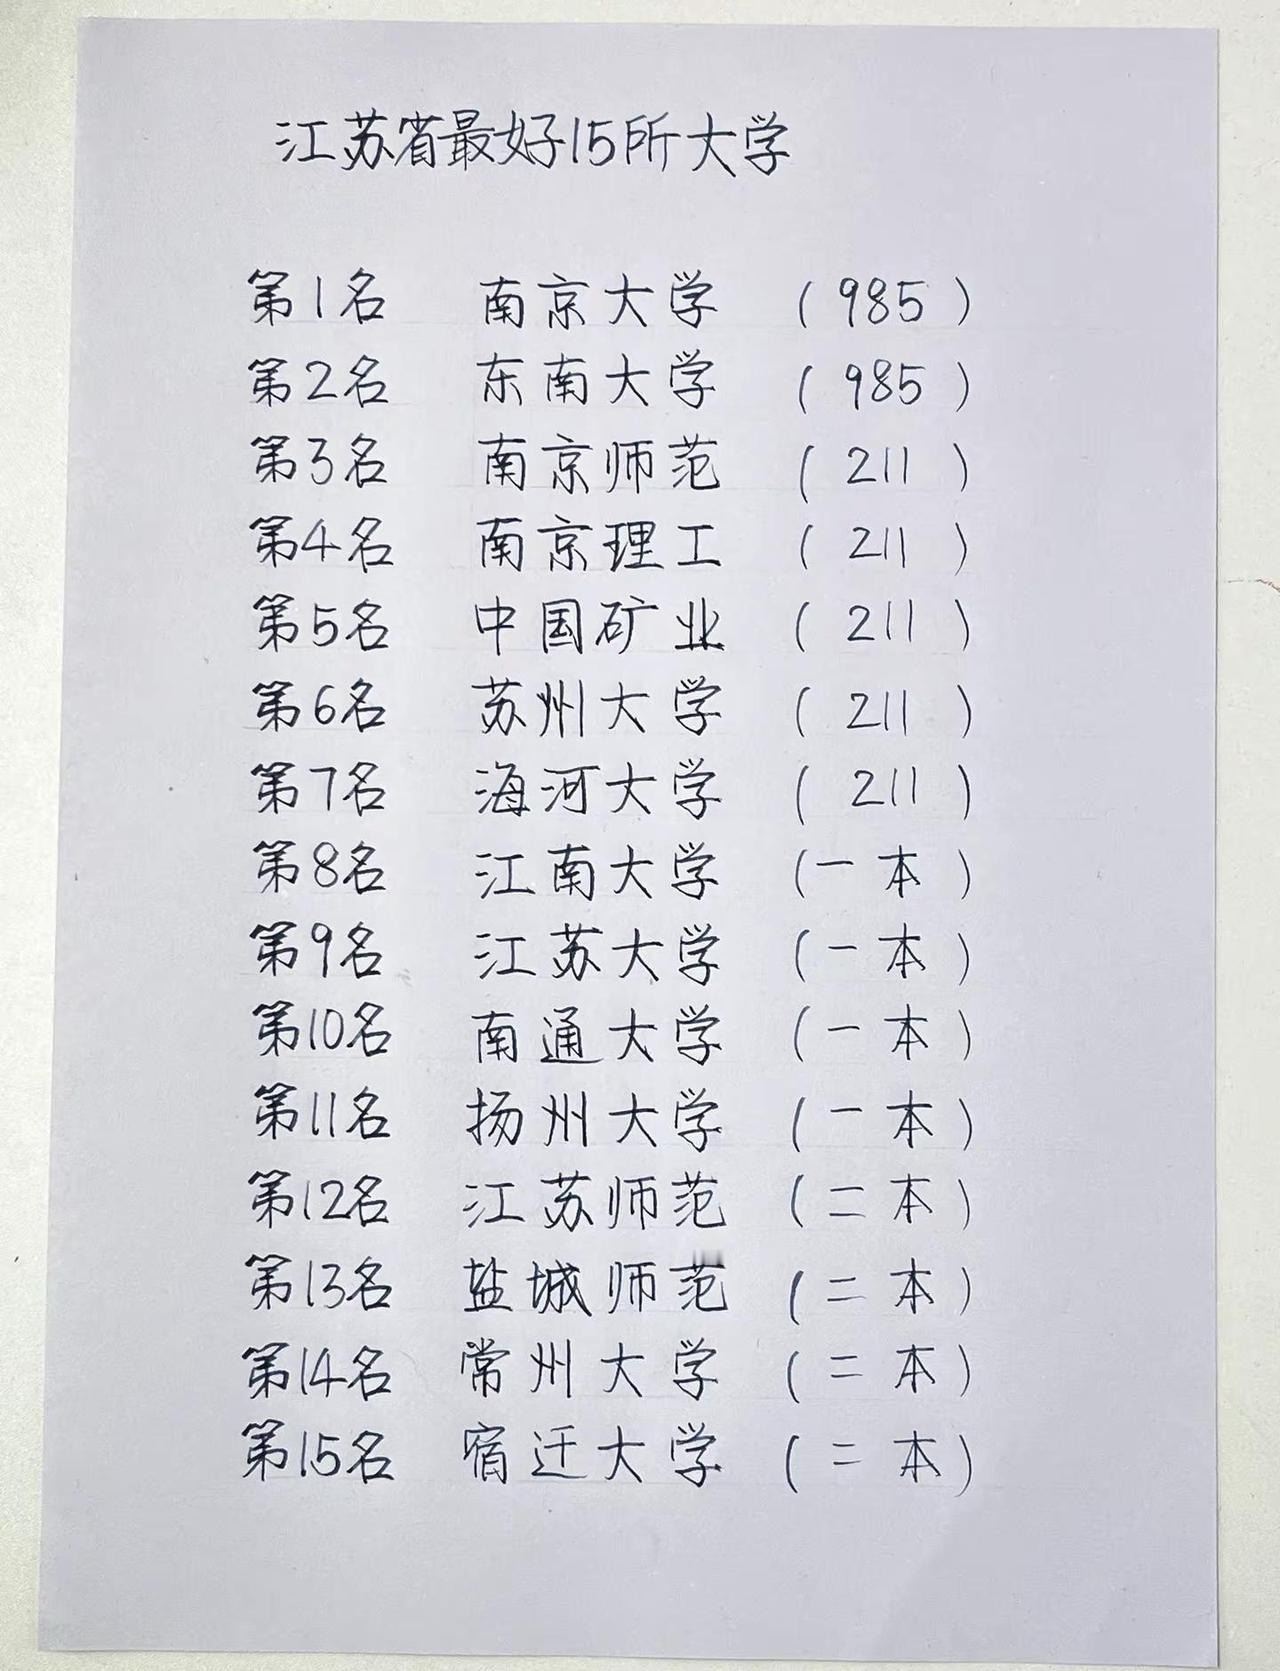 江苏省最好15所大学
第1名 南京大学 (985)
第2名 东南大学 (985)
第3名 南京师范 (211)
第4名 南京理工 (211)
第5名 中国矿业 (211)
第6名 苏州大学 (211)
第7名 海河大学 (211)
第8名 江南大学 (一本)
第9名 江苏大学 (一本)
第10名 南通大学 (一本)
第11名 扬州大学 (一本)
第12名 江苏师范 (二本)
第13名 盐城师范 (二本)
第14名 常州大学 (二本)
第15名 宿迁大学 (二本)